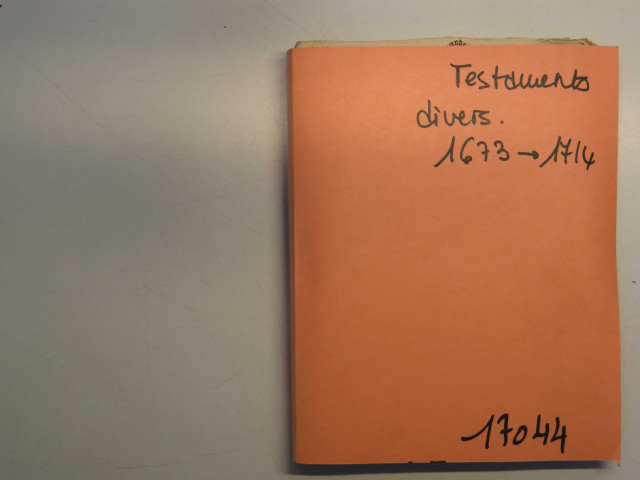 Testaments
divers.
1673 → 1714
17044